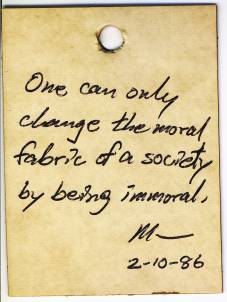 One can only
change the moral
fabric of a society
by being immoral.
M—
2-10-86